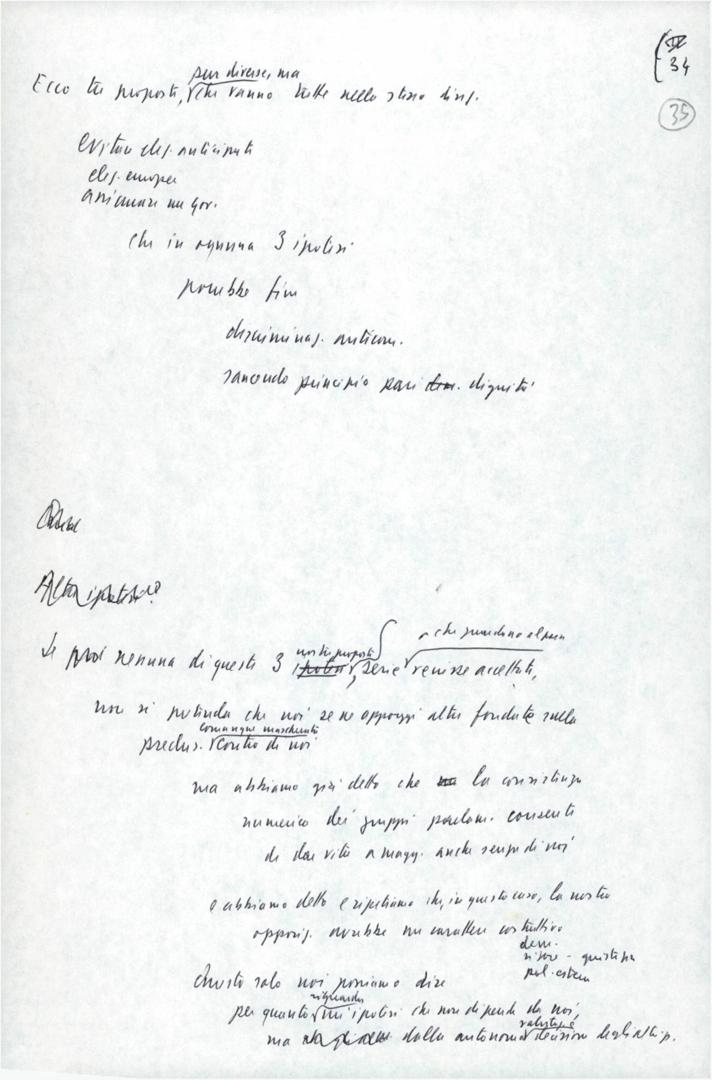 34
35
pur diverse, ma
Ecco tre proposte, che vanno tutte nella stessa direz.
evitare elez. anticipate
elez. europee
assicurare un gov.
che in ognuna 3 ipotesi
porrebbe fine
discriminaz. anticom.
sancendo principio pari dignità
Altra ipotesi?
nostre proposte che
Se poi nessuna di queste 3 ipotesi, serie venisse accettata,
non si pretenda che noi se ne appoggi altre fondate sulla
comunque mascherata
preclus. contro di noi
ma abbiamo già detto che la consistenza
numerica dei gruppi parlam. consente
di dar vita a magg. anche senza di noi
e abbiamo detto e ripetiamo che, in questo caso, la nostra
opposiz. avrebbe un carattere costruttivo
dem.
pol. estera
Questo solo noi possiamo dire
riguarda
per quanto un'ipotesi che non dipende da noi,
ma dalla autonoma decisione degli altri p.